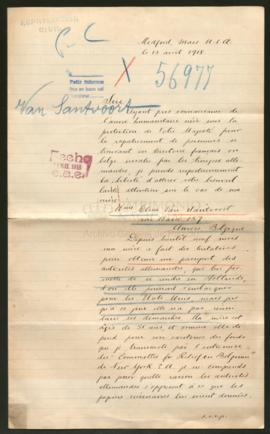 REPATRIATION
CIVIL
Medford, Mass U.S.A.
le 13 avril 1918.
P-C
X 56977
Petit Reference
Van Santvoort
Sire
Ayant pris connaissance de
l'œuvre humanitaire mise sous la
protection de Votre Majesté pour
le rapatriement de personnes se
trouvant en territoire français ou
belge envahi par les troupes alle-
mandes, je prends respectueusement
la liberté d'attirer votre bienveil-
lante attention sur le cas de ma
mère
Fecha
1918
Mme
Van Santvoort
rue 157
Anvers Belgique
Depuis bientôt neuf mois
ma mère a fait des tentatives
pour obtenir un passeport des
autorités allemandes, qui lui per-
mette de se rendre en Hollande,
d'où elle pourrait s'embarquer
pour les Etats Unis, mais jus-
qu'à ce jour elle n'a pas réussi
dans ses démarches. Ma mère est
âgée de 51 ans, et comme elle dé-
pend pour son soutien des fonds
que je transmets par l'entremise
du "Committee for Relief in Belgium"
de New York E.U. je ne comprends
pas pour quelle raison les autorités
allemandes s'opposent à ce que les
papiers nécessaires lui soient donnés.